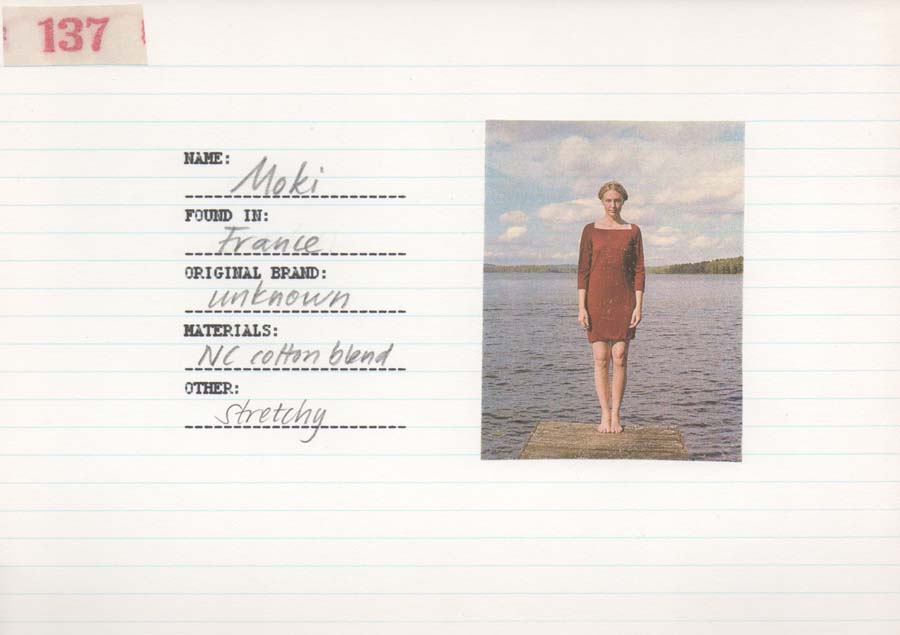 137
NAME:
Moki
FOUND IN:
France
ORIGINAL BRAND:
unknown
MATERIALS:
NC cotton blend
OTHER:
stretchy